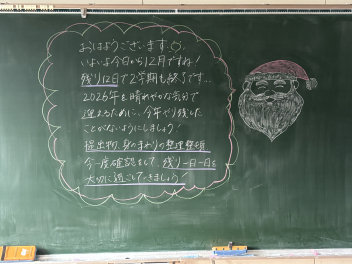 おはようございます
いよいよ今日から12月ですね!
残り12日で2学期も終了です…
2026年を晴れやかな気分で
迎えるために、今年やり残した
ことがないようにしましょう!
提出物、身のまわりの整理整頓
今一度確認をして、残り一日一日を
大切に過ごしていきましょう!